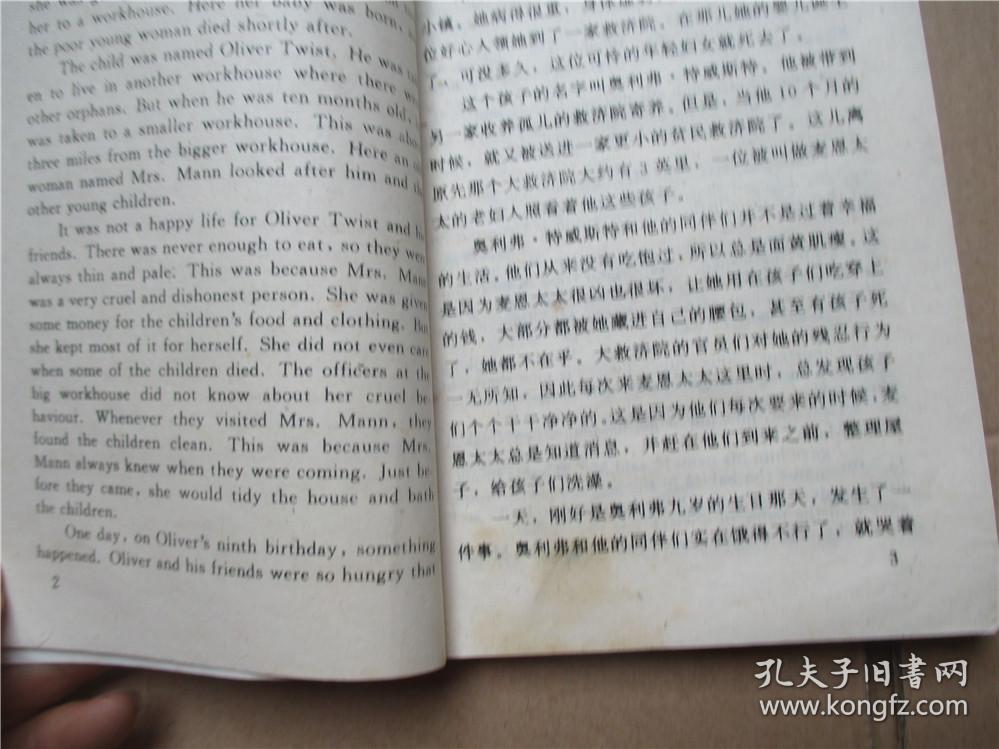 her to a workhouse. Here her baby was born,
the poor young woman died shortly after.
The child was named Oliver Twist. He was
en to live in another workhouse where there
other orphans. But when he was ten months old,
was taken to a smaller workhouse. This was
three miles from the bigger workhouse. Here an
woman named Mrs. Mann looked after him and
other young children.
It was not a happy life for Oliver Twist and
friends. There was never enough to eat, so they
always thin and pale. This was because Mrs. Mann
was a very cruel and dishonest person. She was given
some money for the children's food and clothing. But
she kept most of it for herself. She did not even care
when some of the children died. The officers at the
big workhouse did not know about her cruel be-
haviour. Whenever they visited Mrs. Mann, they
found the children clean. This was because Mrs.
Mann always knew when they were coming. Just be-
fore they came, she would tidy the house and bath
the children.
One day, on Oliver's ninth birthday, something
happened. Oliver and his friends were so hungry that
2
小镇。她病得很重,
位好心人领她到了一家救济院。在那儿她的婴儿诞生
了,可没多久,这位可怜的年轻妇女就死去了。
这个孩子的名字叫奥利弗·特威斯特。他被带到
另一家收养孤儿的救济院寄养。但是,当他10个月的
时候,就又被送进一家更小的贫民救济院了。这儿离
原先那个大救济院大约有3英里,一位被叫做麦恩太
太的老妇人照看着他这些孩子。
奥利弗·特威斯特和他的同伴们并不是过着幸福
的生活。他们从来没有吃饱过,所以总是面黄肌瘦。这
是因为麦恩太太很凶也很坏,让她用在孩子们吃穿上
的钱,大部分都被她藏进自己的腰包,甚至有孩子死
了,她都不在乎。大救济院的官员们对她的残忍行为
一无所知,因此每次来麦恩太太这里时,总发现孩子
们个个干干净净的。这是因为他们每次要来的时候,麦
恩太太总是知道消息,并赶在他们到来之前,整理屋
子,给孩子们洗澡。
一天,刚好是奥利弗九岁的生日那天,发生了一
件事。奥利弗和他的同伴们实在饿得不行了,就哭着
3
孔夫子旧書网
www.kongfz.com